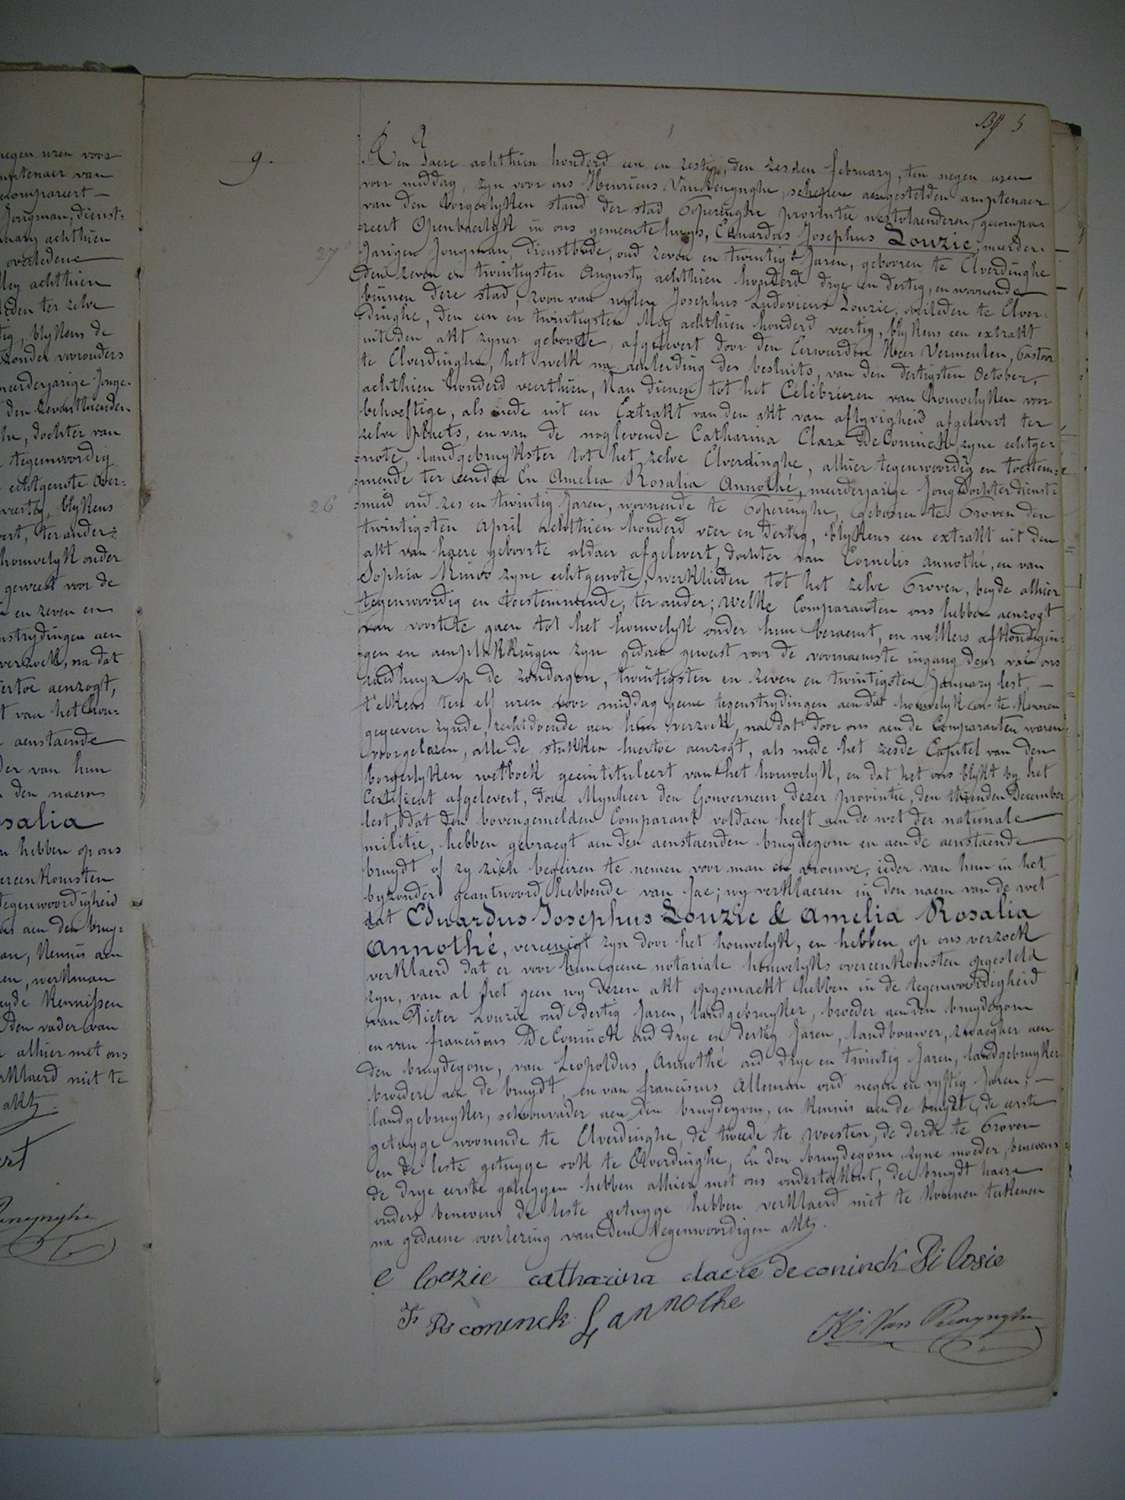 negen uren voor
amptenaer van
compareert —
Jongman, dienst-
nuary achthien
overledene
ley achthien
leden ter zelve
tig, blykens de
zonder voorouders
meerderjarige Jonge-
den zeventhienden
dochter van
tegenwoordig
echtgenote over-
veertig, blykens
ter ander;
houwelyk onder
geweest voor de
en zeven en
nstrydingen aen
verzoek, na dat
iertoe aenzogt,
t van het hou-
aenstaende
der van hun
den naem
osalia
n hebben op ons
vereenkomsten
tegenwoordigheid
aen den bruy-
Kennis aen
en, werkman
beyde Kennissen
den vader van
alhier met ons
verklaerd niet te
akt.
9.
Bff 5
Den Jaere achthien honderd een en zestig, den zesden february, ten negen uren
voor middag, zyn voor ons Henricus Van Renynghe, schepen aengestelden amptenaer
van den borgerlyken stand der stad Poperinghe provintie westvlaenderen, gecompa-
reert Openbaerlyk in ons gemeente huys, Eduardus Josephus Louzie, meerder-
27
jarigen Jongman, dienstbode, oud zeven en twintig Jaren, gebooren te Elverdinghe
den zeven en twintigsten Augusty achthien honderd drye en dertig, en woonende
binnen deze stad, zoon van wylen Josephus Ludovicus Louzie, overleden te Elver-
dinghe, den een en twintigsten Mey achthien honderd veertig, blykens een extrakt
uit den akt zyner geboorte, afgelevert door den Eerweirden Heer Vermeulen, Pastor
te Elverdinghe, het welk na aenleiding des besluits, van den dertigsten October,
achthien honderd veerthien, Kan dienen tot het Celebrieren van houwelyken voor
behoeftige, als mede uit en Extrakt van den akt van aflyvigheid afgelevert ter
zelve plaets, en van de noglevende Catharina Clara DeConinck zyne echtge-
note, landgebruykster tot het zelve Elverdinghe, alhier tegenwoordig en toestem-
mende ter eender En Amelia Rosalia Annothé, meerderjarige Jongdochter dienst-
26
meid oud zes en twintig Jaren, woonende te Poperinghe, gebooren te Proven den
twintigsten April achthien honderd vier en dertig, blykens een extrakt uit den
akt van haere geboorte aldaer afgelevert, dochter van Cornelis annothé, en van
Sophia zyne echtgenote, werklieden tot het zelve Proven, beyde alhier
tegenwoordig en toestemmende, ter ander; welke Comparanten ons hebben aenzogt
van voorts te gaen tot het houwelyk onder hun beraemt, en welkers afkondigin-
gen en aenplakkingen zyn gedaen geweest voor de voornaemste ingang deur van ons
raedhuys op de zondagen, twintigsten en zeven en twintigsten January lest —
t'elkens ten elf uren voor middag geene tegenstrydingen aen dat houwelyk ons te Kennen
gegeeven zynde, rechtdoende aen hun verzoek, na dat door ons aen de Comparanten waren
voorgelezen, alle de stukken hiertoe aenzogt, als mede het zesde Capitel van den
borgerlyken wetboek geintituleert van het houwelyk, en dat het ons blykt by het
Certificat afgelevert, door Mynheer den Gouverneur dezer provintie, den thienden December
lest, dat den bovengemelden Comparant voldaen heeft aen de wet der nationale —
militie, hebben gevraegt aen den aenstaenden bruydegom en aen de aenstaende
bruydt of zy zich begeiren te nemen voor man en vrouwe, ieder van hun in het
byzonder geantwoord hebbende van Jae; wy verklaeren in den naem van de wet
dat Eduardus Josephus Louzie & Amelia Rosalia
Annothé, vereenigt zyn door het houwelyk, en hebben op ons verzoek
verklaerd dat er voor hun geene notariale houwelyks overeenkomsten opgesteld
zyn, van al het geen wy dezen akt opgemaekt hebben in de tegenwoordigheid
van Pieter Louzie oud dertig Jaren, landgebruyker, broeder aen den bruydegom
en van franciscus DeConinck oud drye en dertig Jaren, landbouwer, zwaegher aen
den bruydegom, van Leopoldus Annothé oud drye en twintig Jaren, landgebruyker
broeder aen de bruydt en van franciscus Alleman oud negen en vyftig Jaren, —
landgebruyker, schoonvader aen den bruydegom, en Kennis aen de bruydt, de eerste
getuyge woonende te Elverdinghe, de tweede te Woesten, de derde te Proven
en de leste getuyge ook te Elverdinghe, En den bruydegom, zyne moeder, benevens
de drye eerste getuygen hebben alhier met ons ondertekent, de bruydt haere
ouders benevens de leste getuyge hebben verklaerd niet te Konnen teekenen
na gedaene overlezing van den tegenwoordigen akt.
e louzie catharina claere deconinck Pi losie
Fr De coninck L annothe
H. Van Renynghe